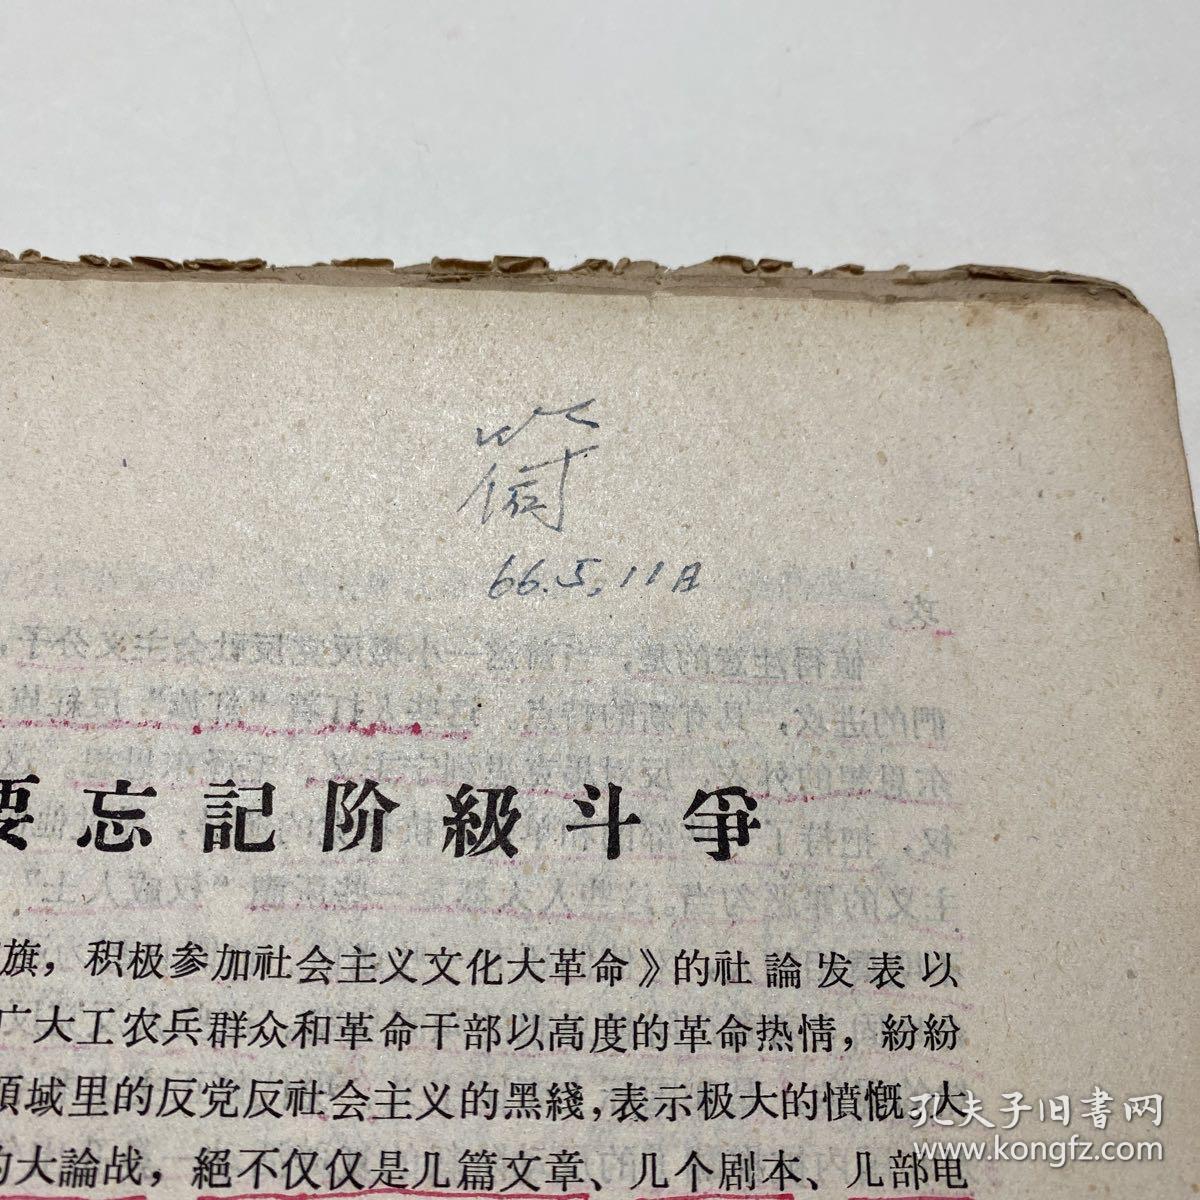 66.5.11日
要忘記阶級斗爭
旗，积极参加社会主义文化大革命》的社論发表以
广大工农兵群众和革命干部以高度的革命热情，紛紛
領域里的反党反社会主义的黑綫，表示极大的憤慨。大
的大論战，絕不仅仅是几篇文章、几个剧本、几部电
孔夫子旧书网
www.kongfz.com